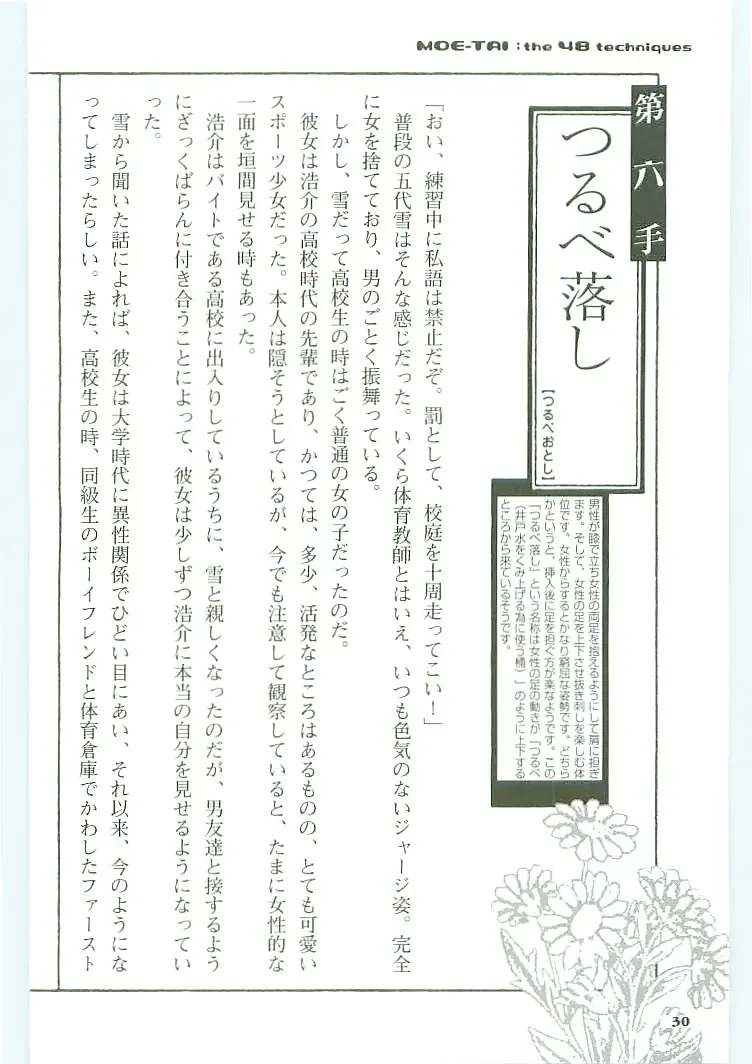 MOE-TAI : the 48 techniques
第六手
つるべ落し
【つるべおとし】
男性が膝で立ち女性の両足を抱えるようにして肩に担ぎ
ます。そして、女性の足を上下させ抜き刺しを楽しむ体
位です。女性からするとかなり窮屈な姿勢です。どちら
かというと、挿入後に足を担ぐ方が楽なようです。この
「つるべ落し」という名称は女性の足の動きが「つるべ
（井戸水をくみ上げる為に使う桶）」のように上下する
ところから来ているそうです。
「おい、練習中に私語は禁止だぞ。罰として、校庭を十周走ってこい！」
普段の五代雪はそんな感じだった。いくら体育教師とはいえ、いつも色気のないジャージ姿。完全
に女を捨てており、男のごとく振舞っている。
しかし、雪だって高校生の時はごく普通の女の子だったのだ。
彼女は浩介の高校時代の先輩であり、かつては、多少、活発なところはあるものの、とても可愛い
スポーツ少女だった。本人は隠そうとしているが、今でも注意して観察していると、たまに女性的な
一面を垣間見せる時もあった。
浩介はバイトである高校に出入りしているうちに、雪と親しくなったのだが、男友達と接するよう
にざっくばらんに付き合うことによって、彼女は少しずつ浩介に本当の自分を見せるようになってい
った。
雪から聞いた話によれば、彼女は大学時代に異性関係でひどい目にあい、それ以来、今のようにな
ってしまったらしい。また、高校生の時、同級生のボーイフレンドと体育倉庫でかわしたファースト
30